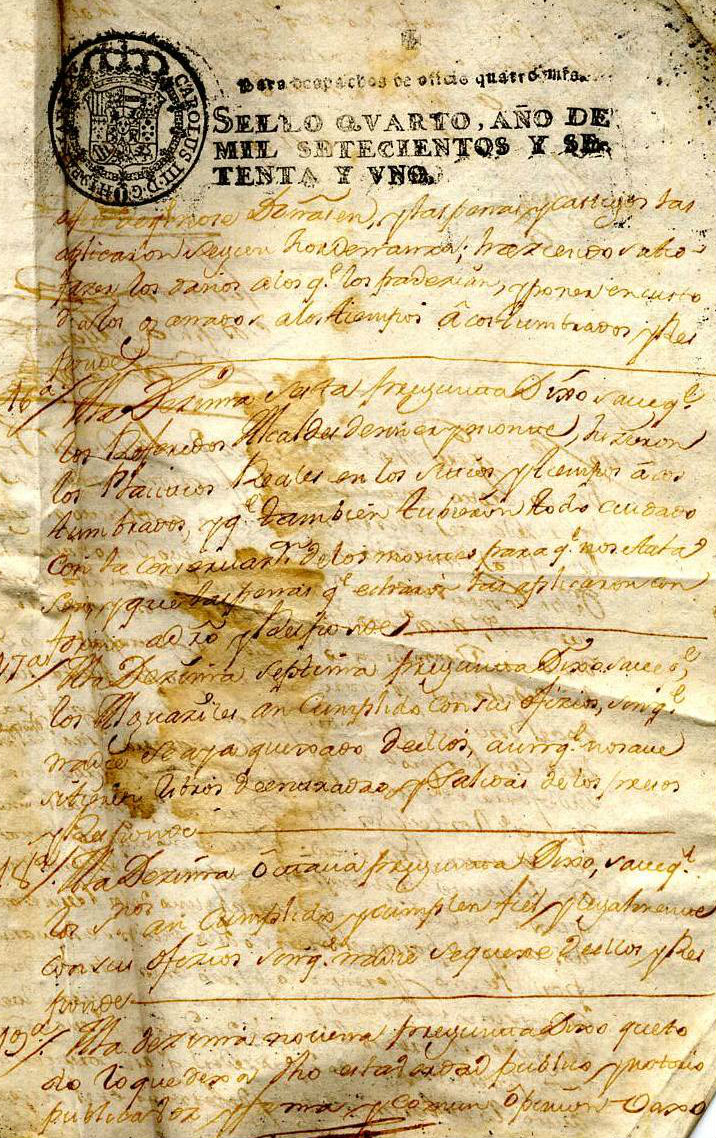 CAROLUS III D G HISPANIAR
Para despachos de oficio quatro mrs.
SELLO QVARTO, AÑO DE
MIL SETECIENTOS Y SE-
TENTA Y VNO.
y las penas y castigos las
aplicaron segun hordenanza; haziendo satis
fazer los daños a los q.e los padezian, y poner en custo
dia los ganados a los tiempos acostumbrados y Res
ponde
16a/ A la Dezima sesta pregunta Dixo save q.e
los Referidos Alcaldes hizieron
los Plantios Reales en los sitios y tiempos acos
tumbrados, y q.e tambien tubieron todo cuidado
con la conservaz.n de los montes para q.e no se tala
sen y que las penas q.e echaron las aplicaron con
forme a dro y Responde
17a/ A la Dezima septima pregunta Dixo save q.e
los Alguaziles an Cumplido con sus ofizios, sin q.e
nadie se aya quexado dellos, aunq.e no save
si tienen libros de entradas y salidas de los presos
y Responde
18a/ A la Dezima octava pregunta Dixo, save q.e
los an Cumplido y cumplen fiel y legalmente
con sus ofizios sin q.e nadie se quexe dellos y Res
ponde
19a/ A la dezima novena pregunta Dixo que to
do lo que dexa dho es la verdad publico y notorio
publica voz y fama y comun opinion